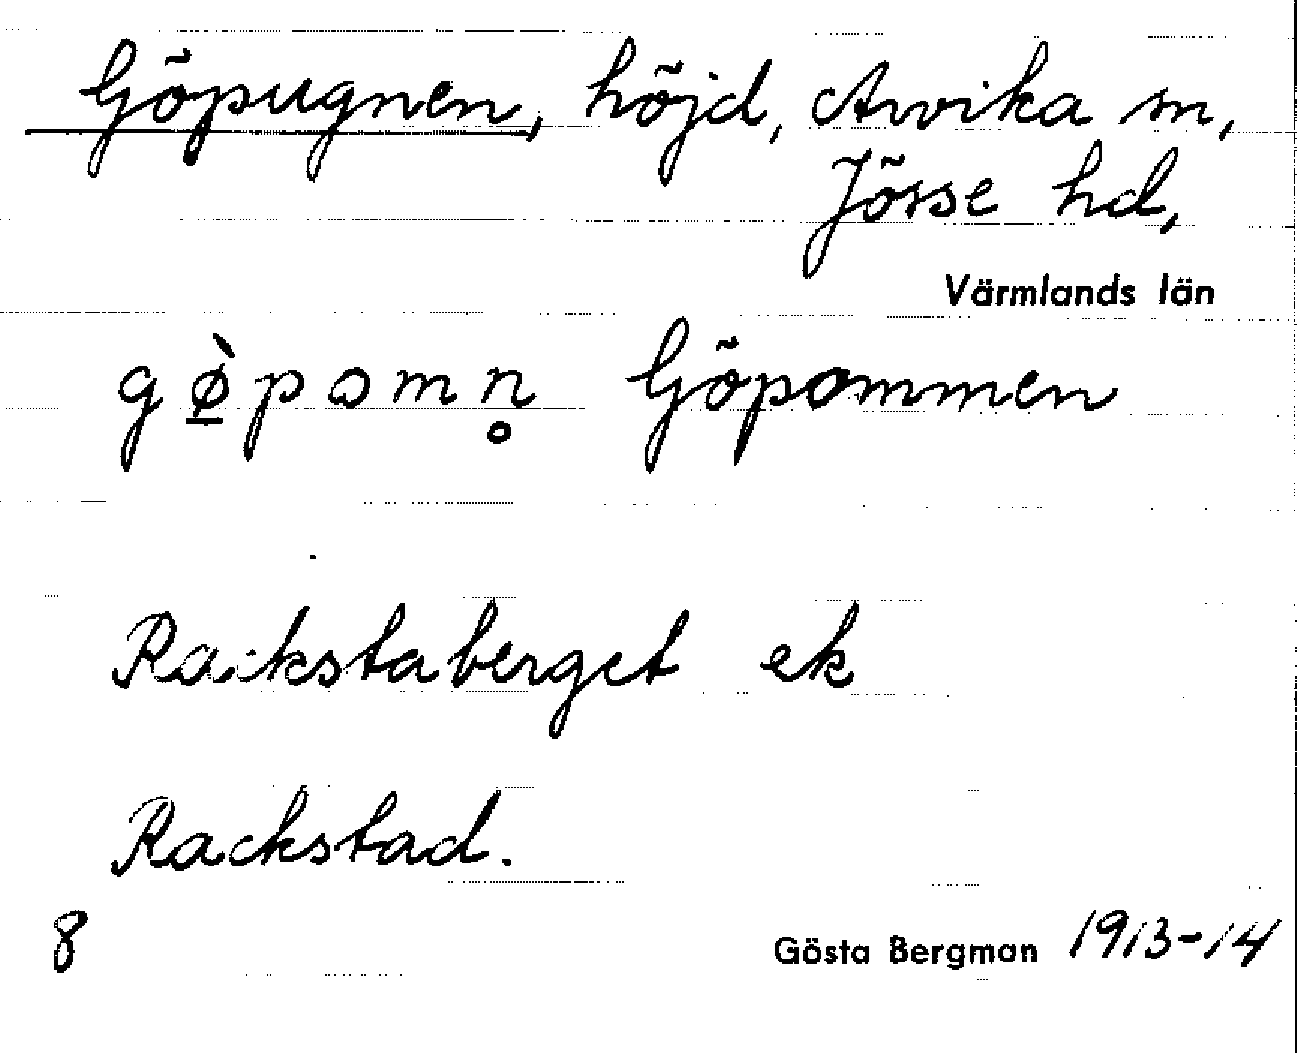 Göpugnen, höjd, Arvika sn,
Jösse hd,
Värmlands län
gø̱̀pɔmn̥ Göpommen
Rackstaberget ek
Rackstad.
8 Gösta Bergman 1913-14